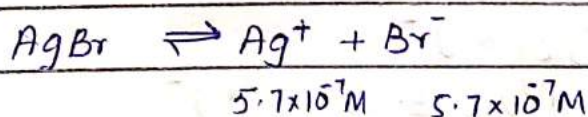 AgBr ⇌ Ag⁺ + Br⁻
5.7×10⁻⁷M 5.7×10⁻⁷M